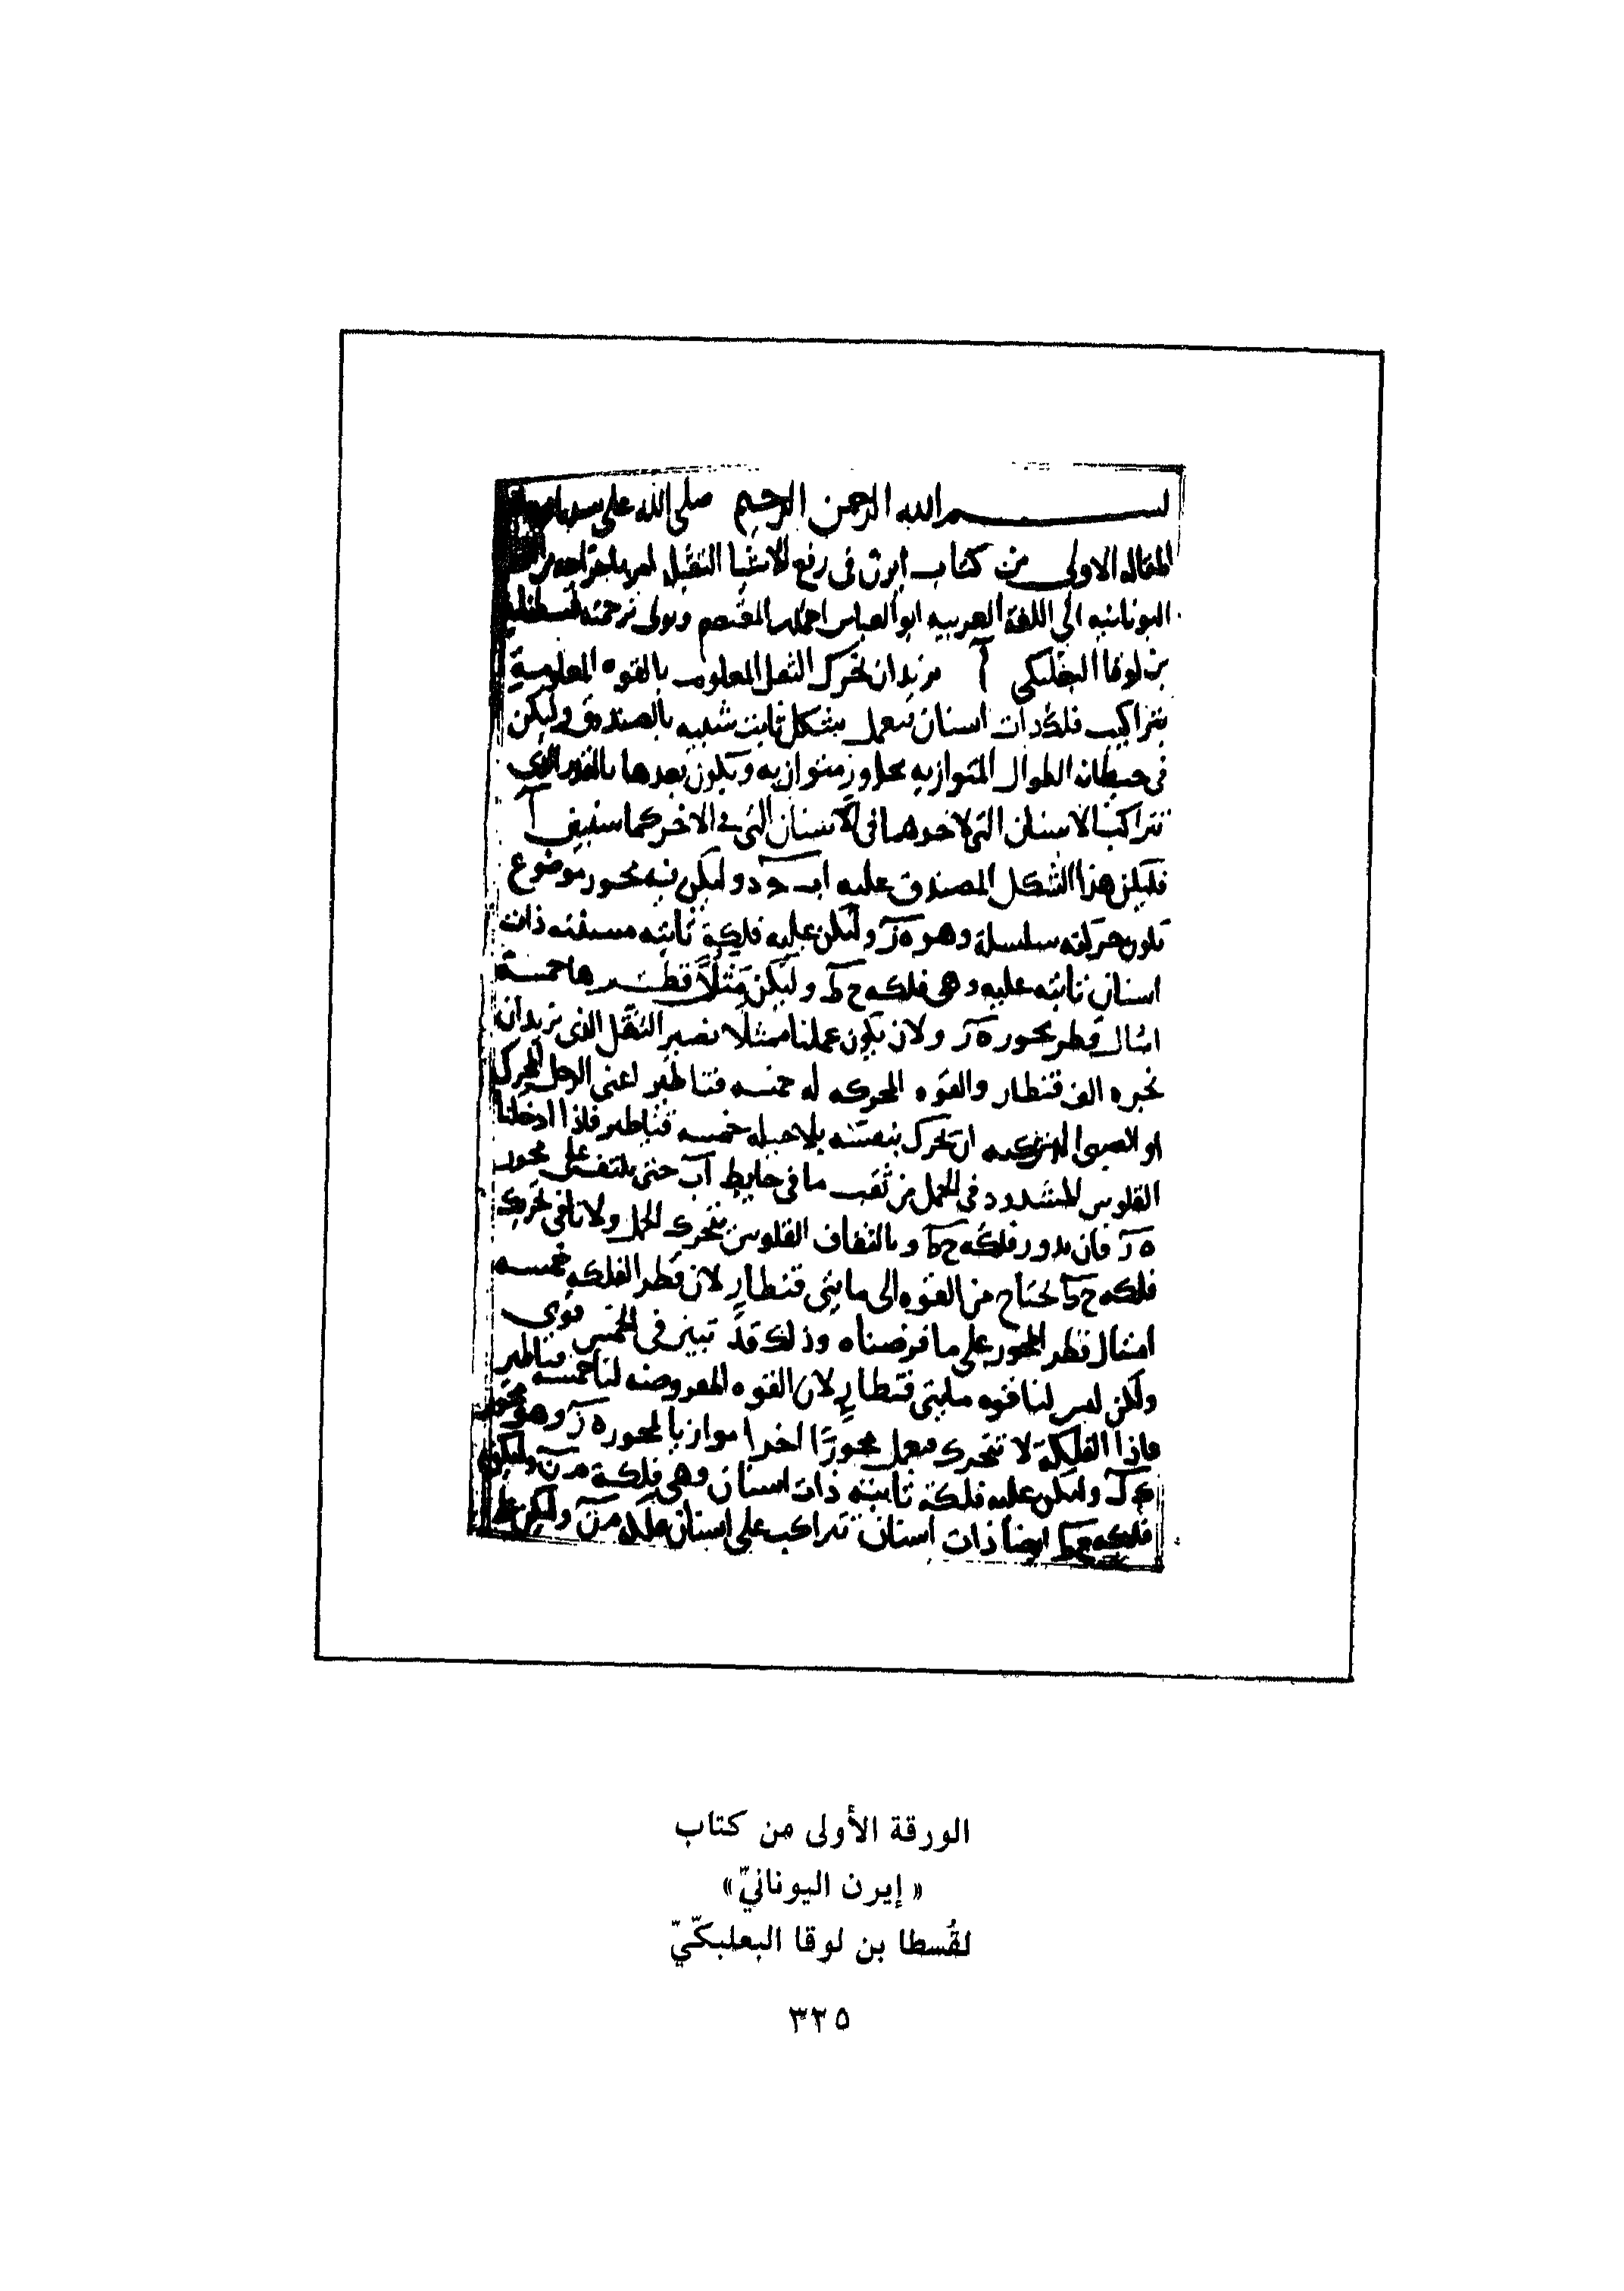 بسم الله الرحمن الرحيم صلى الله على سيدنا
المقاله الاولى من كتاب ايرن فى رفع الاشيا الثقيله امر باخراجه من
اليونانيه الى اللغة العربيه ابو العباس احمد بن المعتصم وتولى ترجمته قسطا
بن لوقا البعلبكى آ نريد ان نحرك الثقل المعلوم بالقوه المعلومة
بتراكيب فلك ذات اسنان نعمل شكل ثابت شبيه بالصندوق وليكن
فى حيطانه الطوال المتوازيه محاور متوازيه ويكون بعدها بالقدر الذى
تتراكب الاسنان التى لاحدهما فى الاسنان التى فى الاخر كما سنبين
فليكن هذا الشكل المصندق عليه اب جد وليكن فيه محور موضوع
تكون حركته سلسلة وهو ه ز وليكن عليه فلكة ثابته مسننه ذات
اسنان ثابته عليه وهى فلكه ح ط وليكن مثلا قطرها خمسة
امثال قطر محور ه ز ولان يكون عملنا ممثلا نصير الثقل الذى نريد ان
نجره الف قنطار والقوه المحركه له خمسه قناطير اعنى الرجل المحرك
او الصبى ان يحرك بنفسه بلا حيله خمسه قناطير فاذا ادخلنا
القلوس المشدود فى الحمل من ثقب ما فى حايط اب حتى يلتف على محور
ه ز فان بدور فلكه ح ط وبالتفاف القلوس يتحرك الحمل ولانا فى تحريك
فلكه ح ط نحتاج من القوه الى مايتى قنطار لان قطر الفلكه خمسه
امثال قطر المحور على ما فرضناه وذلك قد تبين فى الخمس قوى
ولكن ليس لنا قوه مايتى قنطار لان القوه المفروضه لنا خمسه قناطير
فاذا الفلكة لا تتحرك نعمل محورًا اخرا موازيا لمحور ه ز وهو محور
ك ل وليكن عليه فلكة ثابته ذات اسنان وهى فلكة م ن وليكن
فلكه ح ط ايضا ذات اسنان تتراكب على اسنان فلكه م ن وليكن
الورقة الأولى من كتاب
« إيرن اليونانيّ»
لقُسطا بن لوقا البعلبكّيّ
٣٢٥